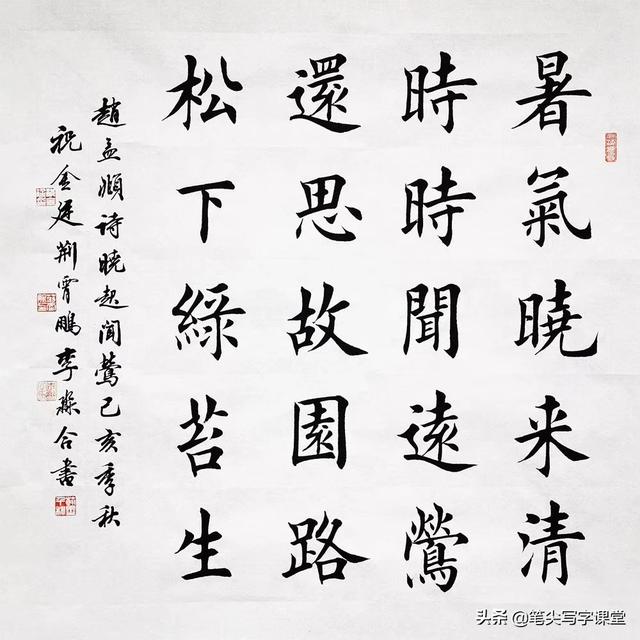 暑氣曉来清
時時聞遠鶯
還思故園路
松下綠苔生
趙孟頫诗曉起闻鶯己亥季秋
祝金廷荆霄鵬李淼合書
头条 @笔尖写字课堂